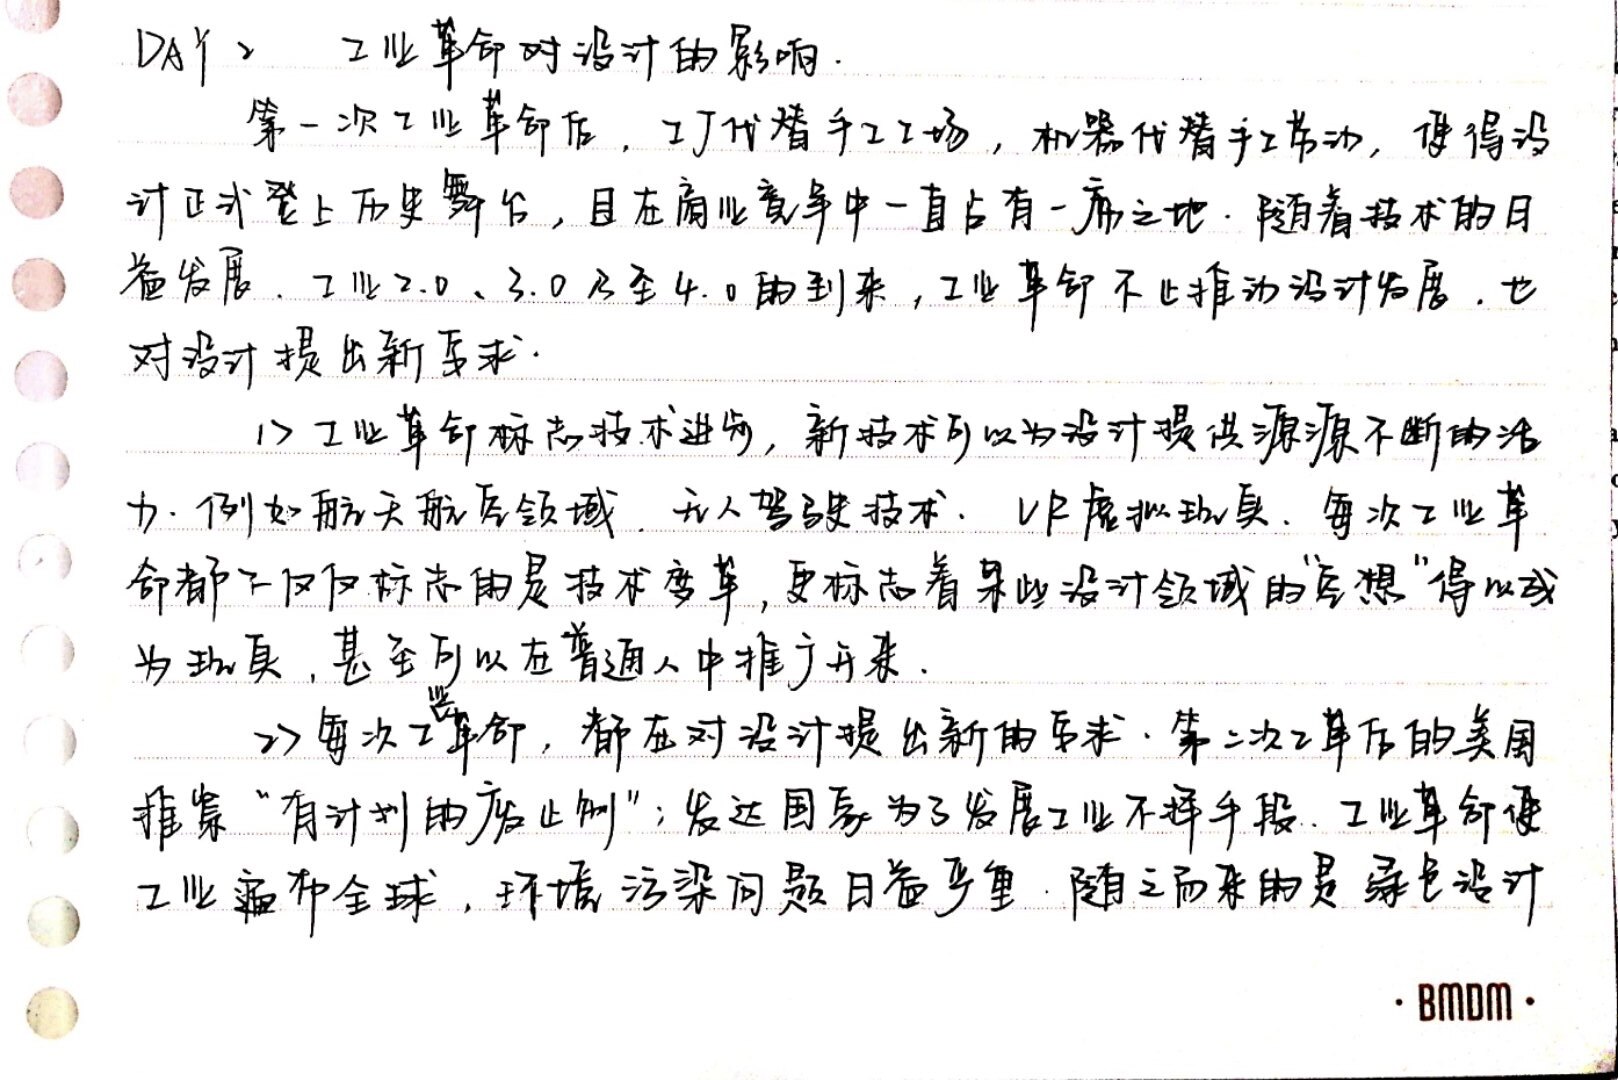 DAY 2 工业革命对设计的影响.
第一次工业革命后,工厂代替手工工场,机器代替手工劳动,使得设
计正式登上历史舞台,且在商业竞争中一直占有一席之地.随着技术的日
益发展、工业2.0、3.0乃至4.0的到来,工业革命不止推动设计发展.也
对设计提出新要求.
1> 工业革命标志技术进步,新技术可以为设计提供源源不断的活
力.例如航天航空领域、无人驾驶技术、VR虚拟现实.每次工业革
命都不仅仅标志的是技术变革,更标志着某些设计领域的"空想"得以成
为现实,甚至可以在普通人中推广开来.
2> 每次工业革命,都在对设计提出新的要求.第二次工革后的美国
推崇"有计划的废止制";发达国家为了发展工业不择手段.工业革命使
工业遍布全球,环境污染问题日益严重.随之而来的是绿色设计
·BMDM·